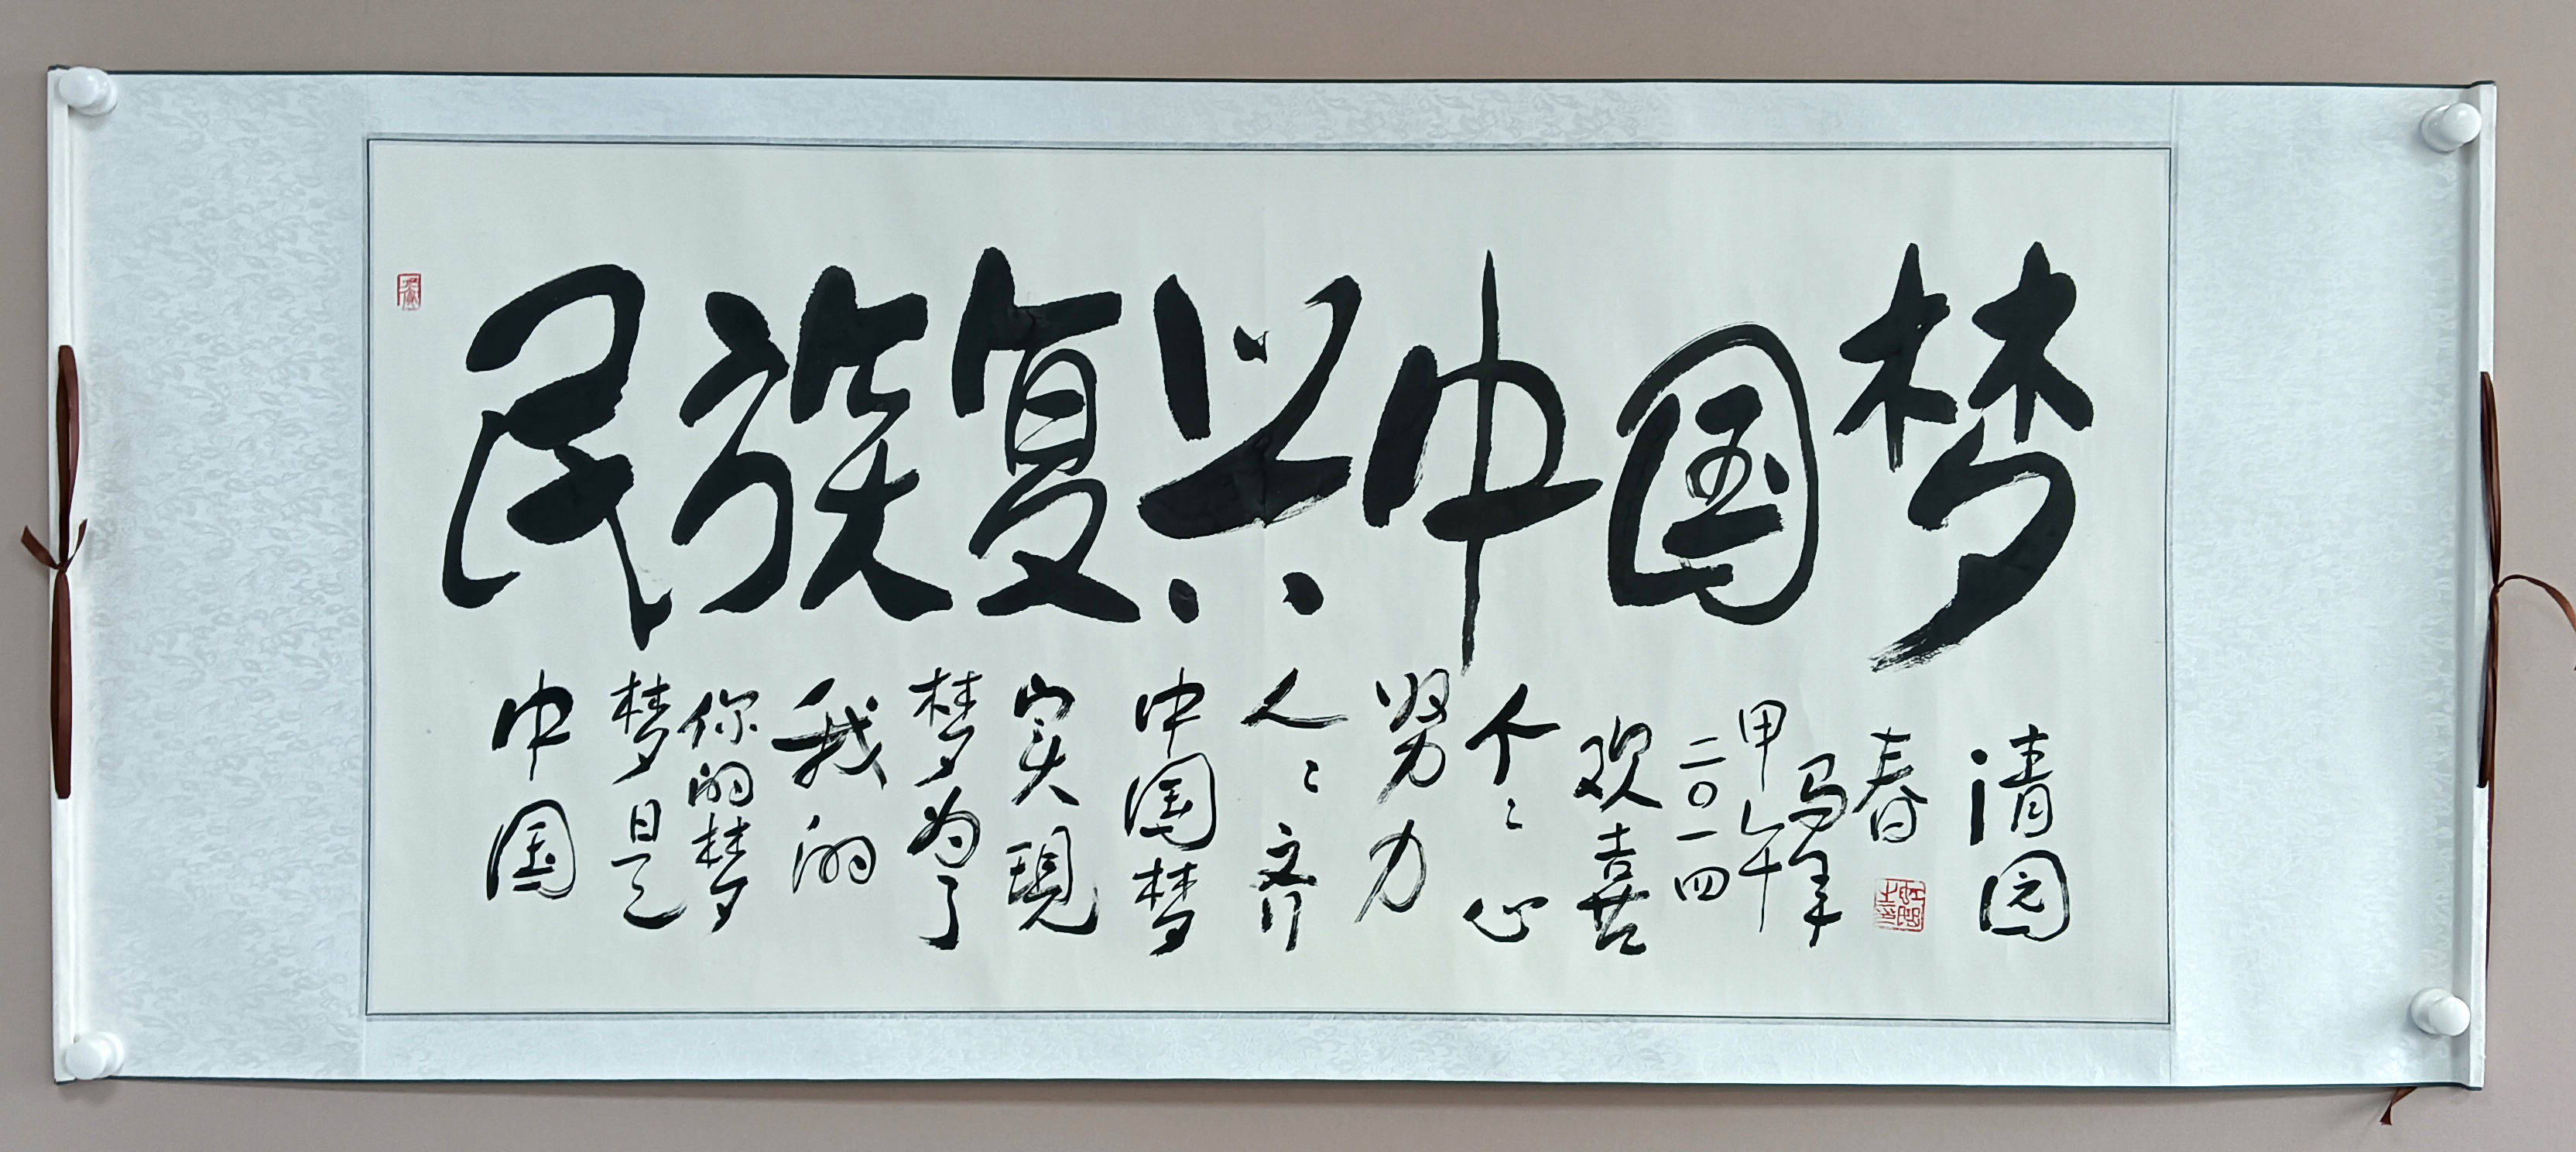 民族复兴中国梦
中国
梦是
你的梦
我的
梦为了
实现
中国梦
人々齐
努力
个々心
欢喜
二〇一四
甲午
马年
春
清园